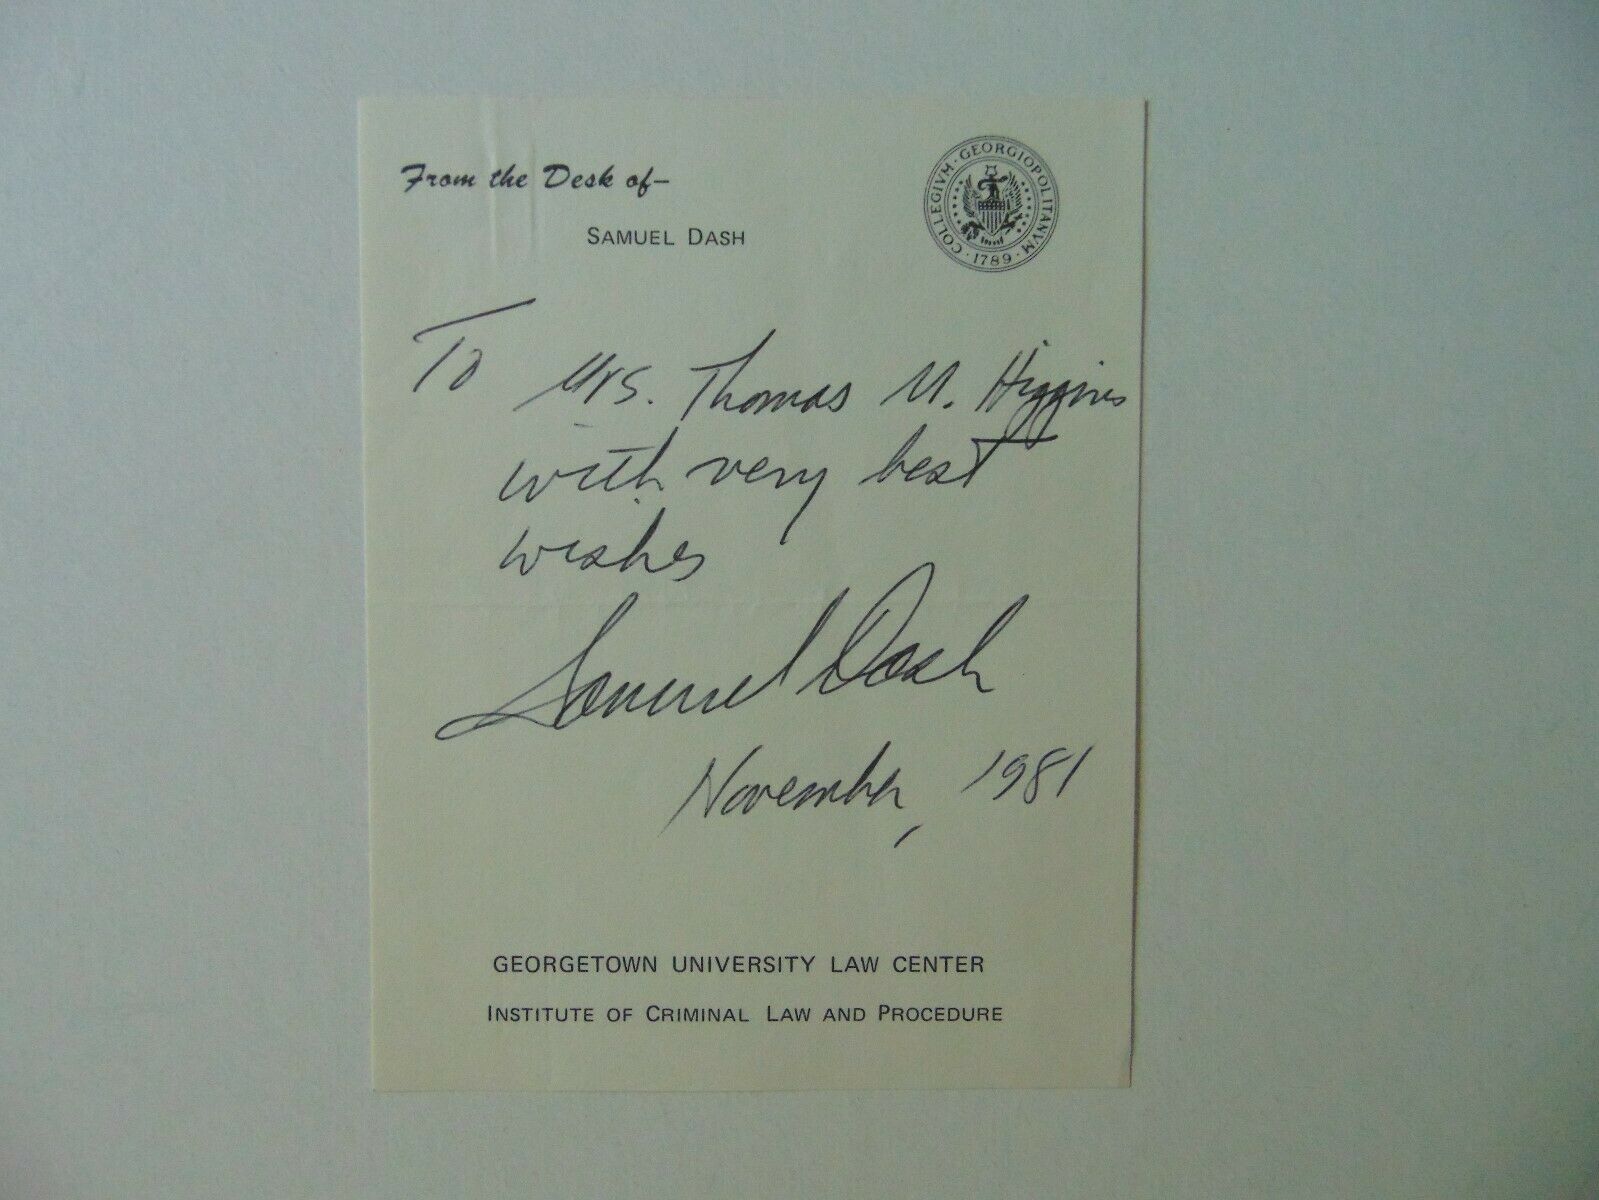 From the Desk of—
SAMUEL DASH
COLLEGIVM · GEORGIOPOLITANVM · 1789 ·
To Mrs. Thomas M. Higgins
with very best
wishes
Samuel Dash
November, 1981
GEORGETOWN UNIVERSITY LAW CENTER
INSTITUTE OF CRIMINAL LAW AND PROCEDURE